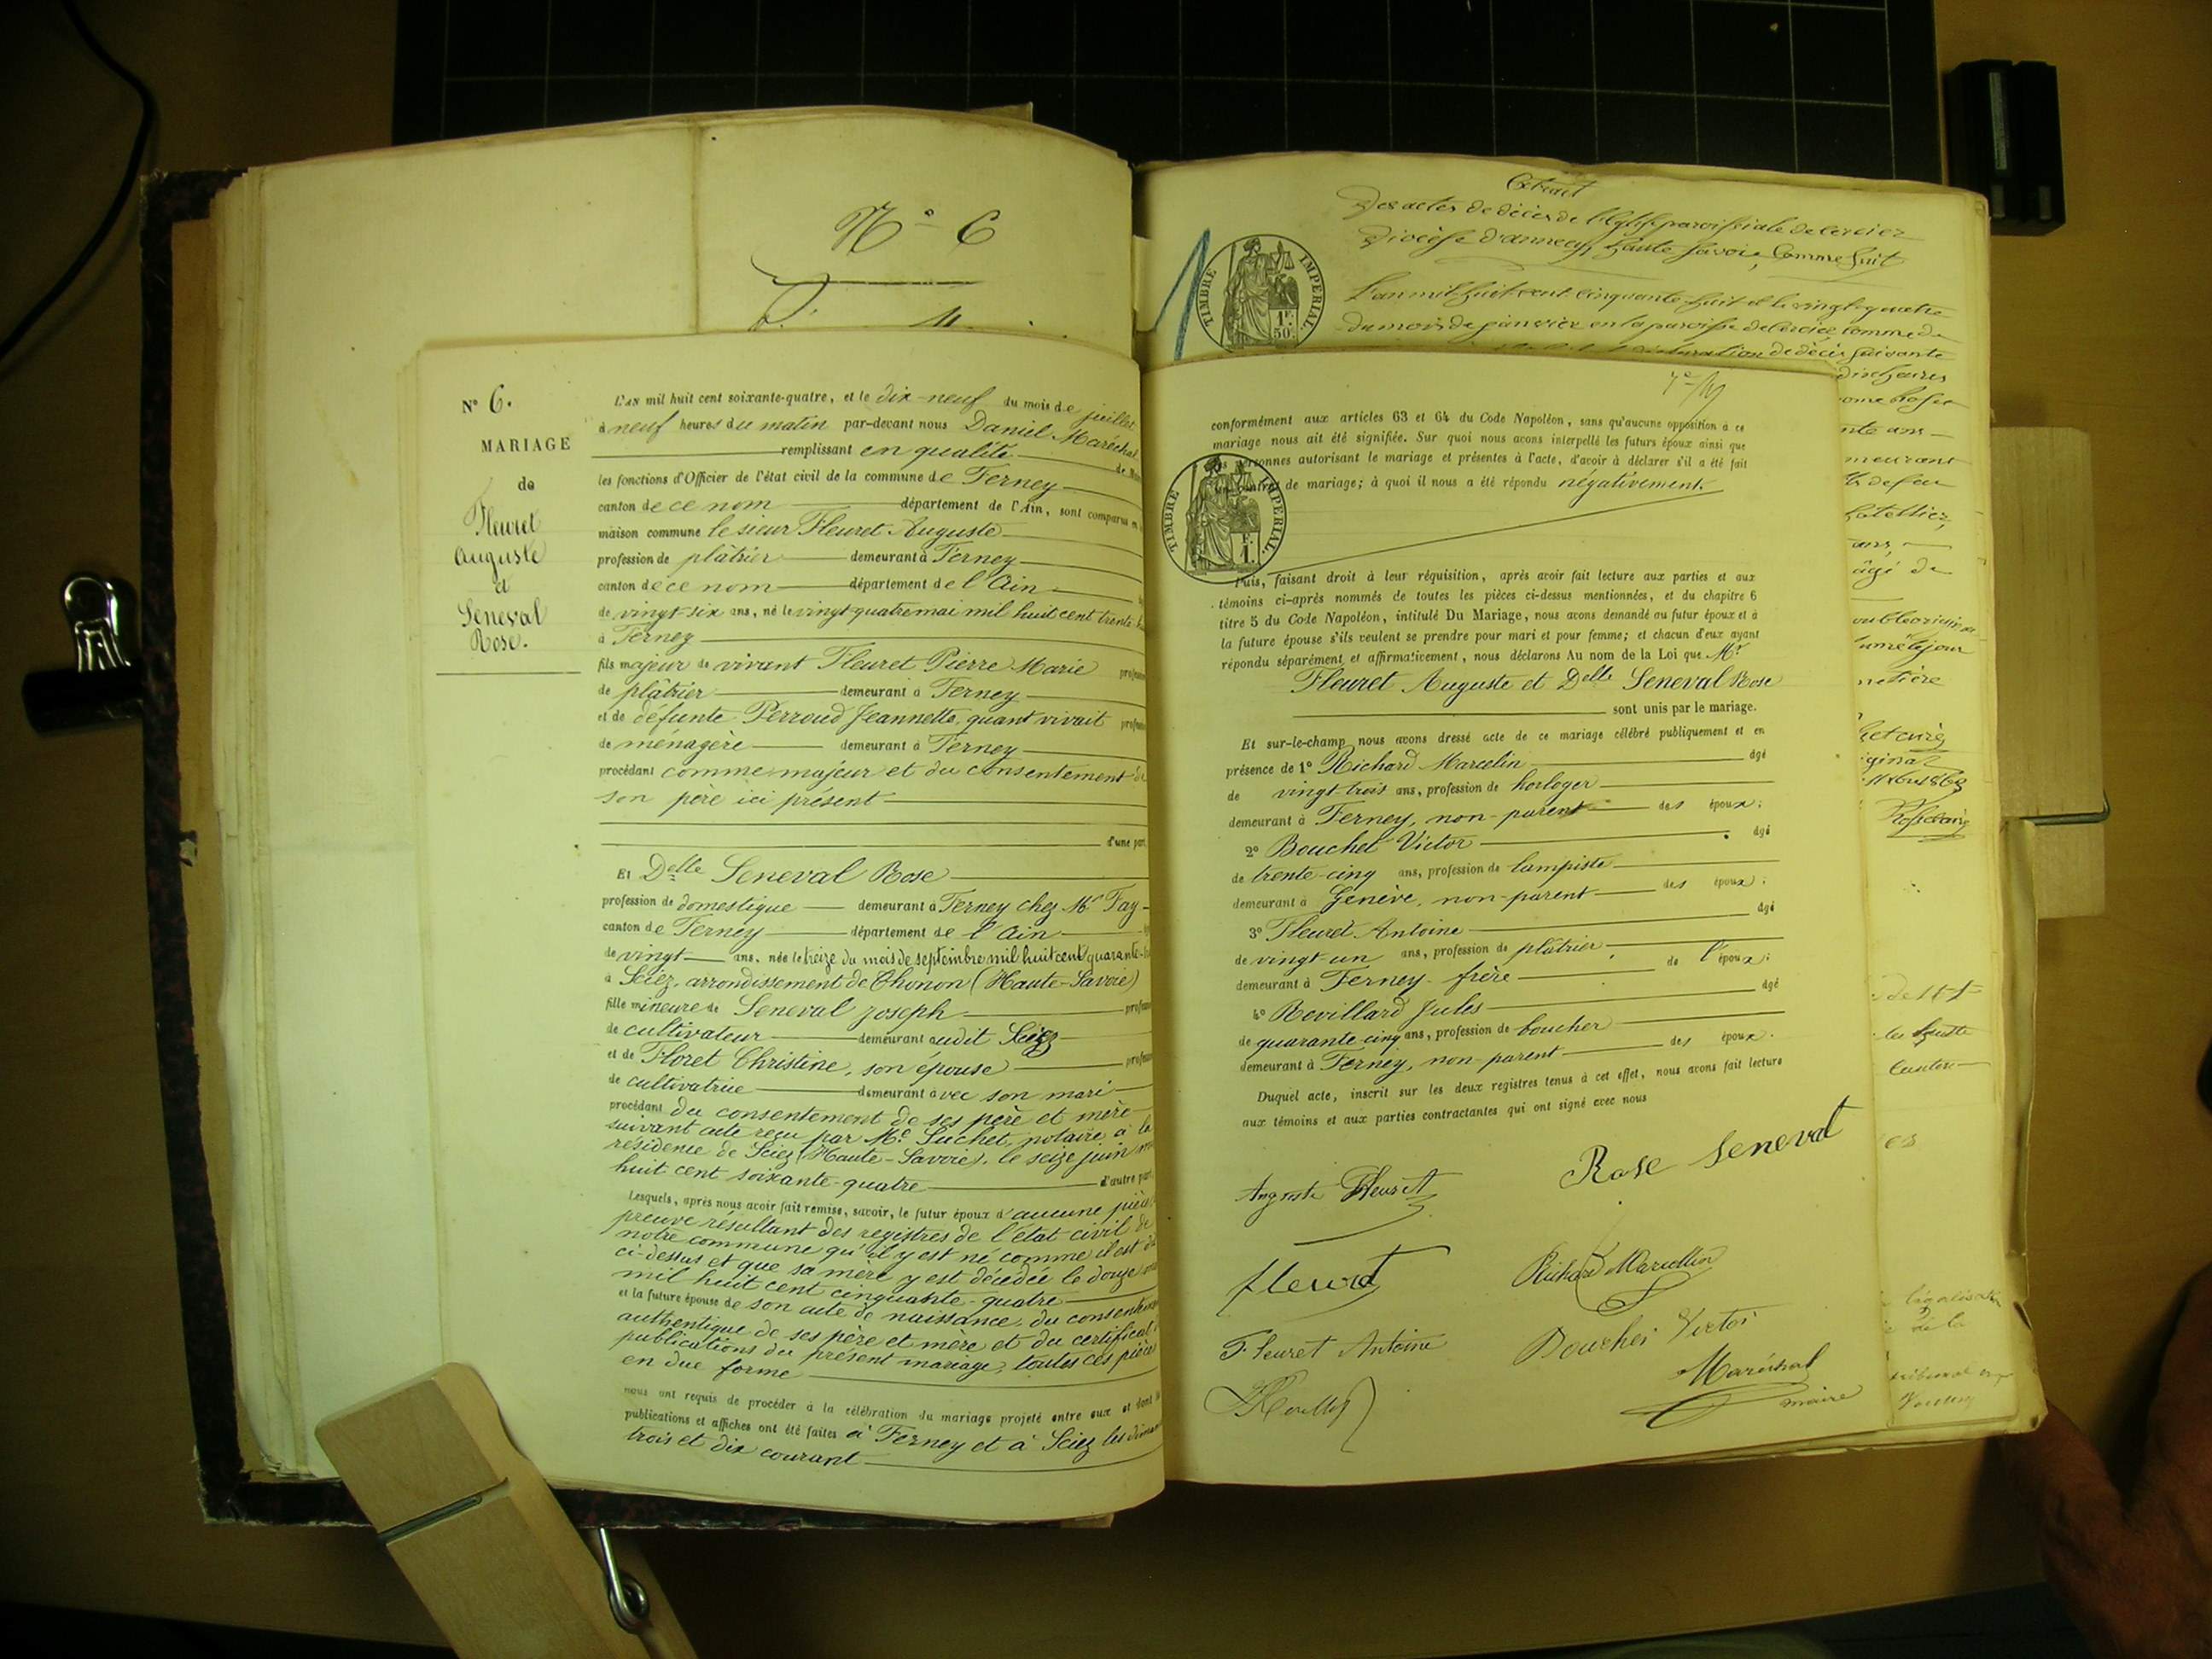 N° 6
N° 6.
MARIAGE
de
Fleuret
Auguste
et
Seneval
Rose.
L'AN mil huit cent soixante-quatre, et le dix-neuf du mois de juillet
à neuf heures du matin par-devant nous Daniel Maréchal
remplissant en qualité de
les fonctions d'Officier de l'état civil de la commune de Ferney
canton de ce nom département de l'Ain, sont comparus en
maison commune le sieur Fleuret Auguste
profession de plâtrier demeurant à Ferney
canton de ce nom département de l'Ain
de vingt-six ans, né le vingt quatre mai mil huit cent trente
à Ferney
fils majeur de vivant Fleuret Pierre Marie
de plâtrier demeurant à Ferney
et de défunte Perroud Jeannette, quant vivait
de ménagère demeurant à Ferney
procédant comme majeur et du consentement de
son père ici présent
d'une part
Et Delle Seneval Rose
profession de domestique demeurant à Ferney chez Mr Fay
canton de Ferney département de l'Ain
de vingt ans, née le treize du mois de septembre mil huit cent quarante
à Sciez, arrondissement de Thonon (Haute-Savoie)
fille mineure de Seneval Joseph
de cultivateur demeurant audit Sciez
et de Floret Christine, son épouse
de cultivatrice demeurant avec son mari
procédant du consentement de ses père et mère
suivant acte reçu par Me Suchet, notaire à la
résidence de Sciez (Haute-Savoie), le seize juin
huit cent soixante-quatre d'autre part
Lesquels, après nous avoir fait remise, savoir, le futur époux d'aucune pièce
preuve résultant des registres de l'état civil de
notre commune qu'il y est né comme il est dit
ci-dessus et que sa mère y est décédée le douze
mil huit cent cinquante-quatre
et la future épouse de son acte de naissance, du consentement
authentique de ses père et mère et du certificat
publications du présent mariage, toutes ces pièces
en due forme
nous ont requis de procéder à la célébration du mariage projeté entre eux et dont les
publications et affiches ont été faites à Ferney et à Sciez les
trois et dix courant
Extrait
Des actes de décès de l'Eglise paroissiale de Cercier
Diocèse d'annecy, haute Savoie, Comme suit
L'an mil huit cent cinquante huit et le vingt quatre
du mois de janvier en la paroisse de Cercier Commune de
déclaration de décès suivante
TIMBRE IMPERIAL
1F.
50.
conformément aux articles 63 et 64 du Code Napoléon, sans qu'aucune opposition à ce
mariage nous ait été signifiée. Sur quoi nous avons interpellé les futurs époux ainsi que
personnes autorisant le mariage et présentes à l'acte, d'avoir à déclarer s'il a été fait
contrat de mariage; à quoi il nous a été répondu négativement.
TIMBRE IMPERIAL
1F.
Puis, faisant droit à leur réquisition, après avoir fait lecture aux parties et aux
témoins ci-après nommés de toutes les pièces ci-dessus mentionnées, et du chapitre 6
titre 5 du Code Napoléon, intitulé Du Mariage, nous avons demandé au futur époux et à
la future épouse s'ils veulent se prendre pour mari et pour femme; et chacun d'eux ayant
répondu séparément et affirmativement, nous déclarons Au nom de la Loi que Mr
Fleuret Auguste et Delle Seneval Rose
sont unis par le mariage.
Et sur-le-champ nous avons dressé acte de ce mariage célébré publiquement et en
présence de 1° Richard Marcelin âgé
de vingt-trois ans, profession de horloger
demeurant à Ferney, non-parent des époux;
2° Bouchet Victor âgé
de trente-cinq ans, profession de lampiste
demeurant à Genève, non-parent des époux;
3° Fleuret Antoine âgé
de vingt-un ans, profession de plâtrier, de l'époux;
demeurant à Ferney frère
4° Revillard Jules âgé
de quarante-cinq ans, profession de boucher
demeurant à Ferney, non-parent des époux.
Duquel acte, inscrit sur les deux registres tenus à cet effet, nous avons fait lecture
aux témoins et aux parties contractantes qui ont signé avec nous
Rose Seneval
Auguste Fleuret
fleuret
Richard Marcellin
Fleuret Antoine
Bouchet Victor
Maréchal
maire